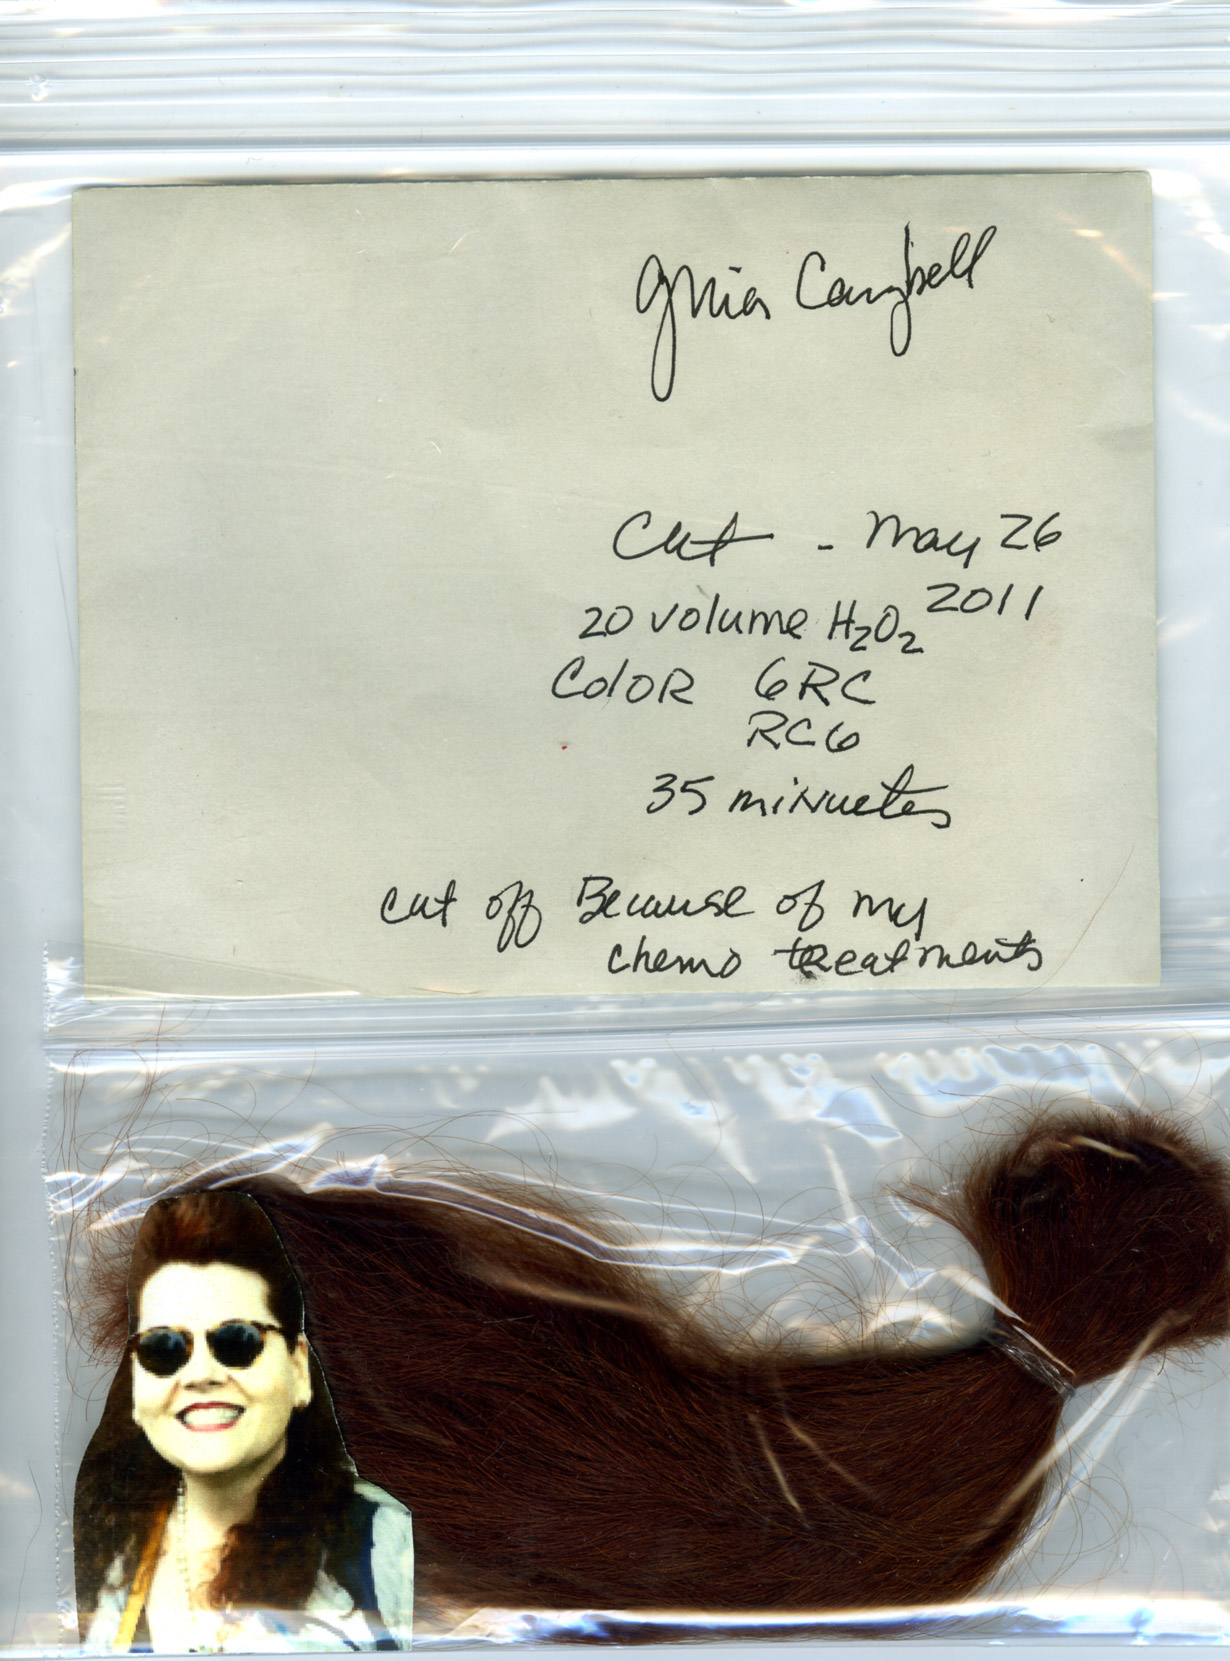 Campbell
Cut - May 26
2011
20 volume H₂O₂
ColoR 6RC
RC6
35 minuetes
cut off Because of my
chemo treatments